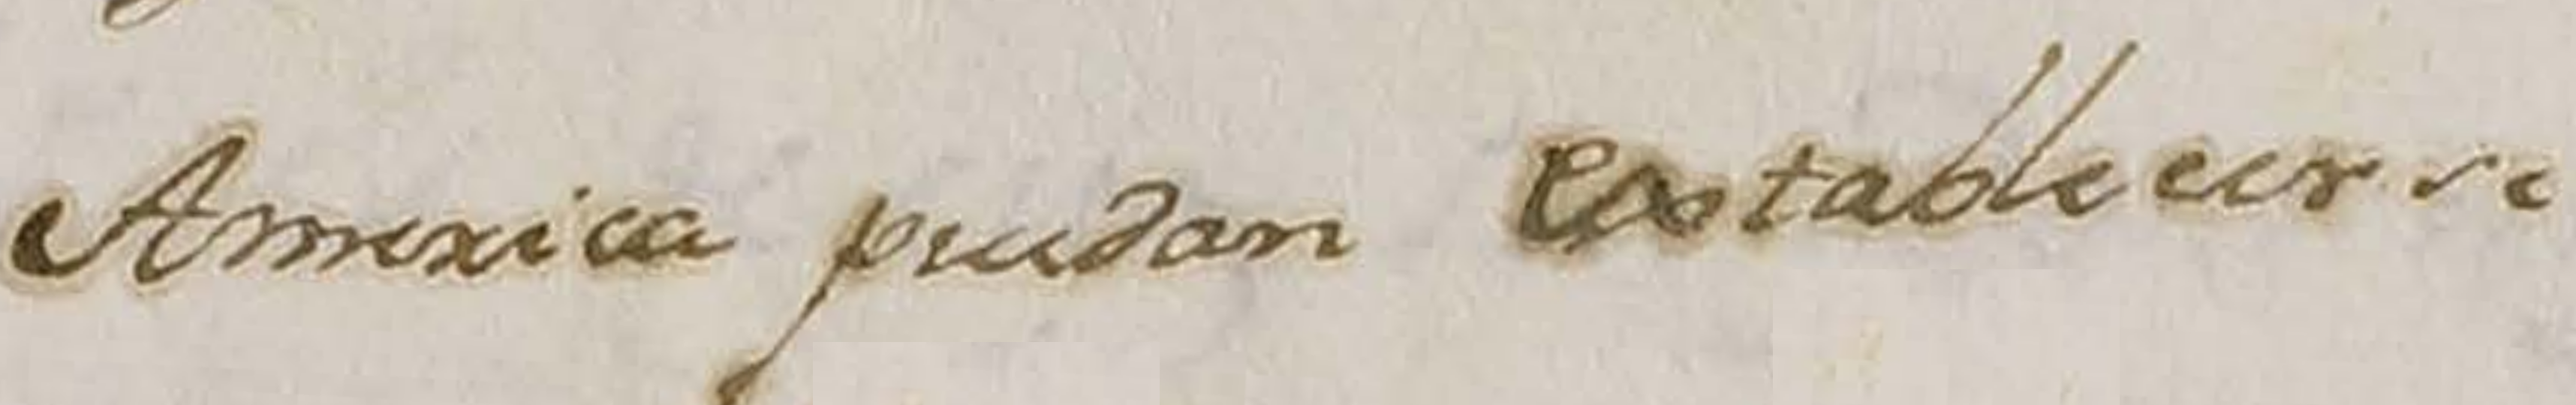 America puedan establecerse